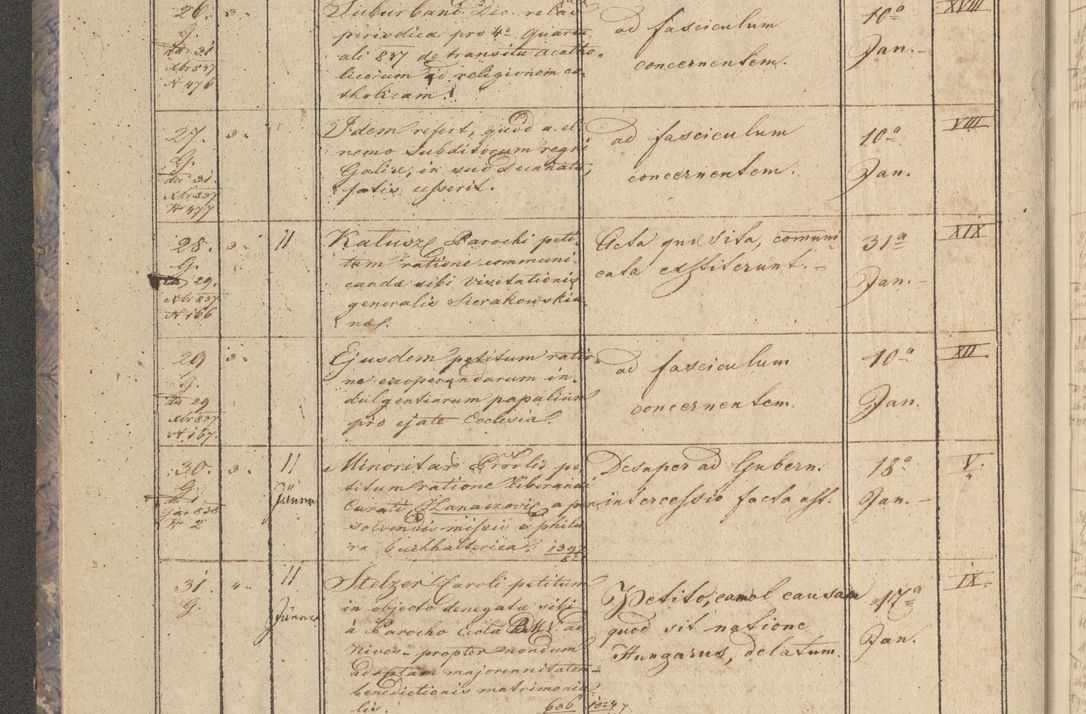 26. 3.
G.
dto 31
Xbr 837
N 476
Suburbani Dec. relaõ
periodica pro 4º quartu
ali 837 de transitu acatho-
licorum ad religionem ca-
tholicam.
ad fasciculum
concernentem.
10ª
Jan.-
XVIII
27. 3.
G.
dto 31
Xbr 837
N 477
Idem refert, quod a. el.
nemo Subditorum regni
Galiz, in suo decanatu,
fatis cesserit.
ad fasciculum
concernentem.
10ª
Jan.
VIII
28. 3.
G.
dto 29.
Xbr 837
N. 166
11
Katusze Parochi peti-
tum ratione communi
candæ sibi visitationis
generalis Sierakowskia
næ.
Acta quæsita, communi-
cata exstiterunt.-
31ª
Jan.-
XIX
29 3.
G.
dto 29
Xbr 837
N. 167
Ejusdem petitum ratio-
ne exoperandarum in-
dulgentiarum papalium
pro ejate Ecclesia.
ad fasciculum
concernentem.
10ª
Jan.
XII
30. 3.
G.
Jae 838
N 2
11
Jänner
Minoritar Provlis pe-
titum ratione liberandi
Curati a per-
solvendis missis e phila-
ra
Desuper ad Gubern.
intercessio facta est.
18ª
Jan.-
V.
31. 4.
G.
11
Jänner
Stelzer Caroli petitum
in objecto denegatæ sibi
à Parocho
propter nondum
adeptam majorennitatem
benedictionis matrimonia
lis. 636 1024
Petito, ex causa
quod sit natione
Hungarus, delatum.
17ª
Jan.
IX.